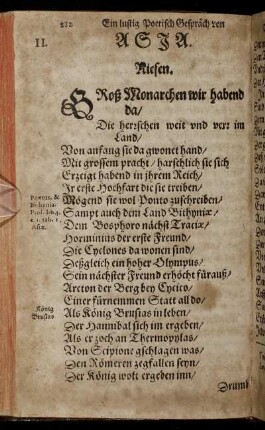 212
Ein lustig Poetisch Gespräch von
II.
ASIA.
Riesen.
GRoß Monarchen wir habend
da/
Die herrschen weit vnd verr im
Land/
Von anfang sie da gwonet hand/
Mit grossem pracht/ harschlich sie sich
Erzeigt habend in jhrem Reich/
Jr erste Hochfart die sie treiben/
Mögend sie wol Ponto zuschreiben/
Pontus, &
Bithynia
Sampt auch dem Land Bithyniæ/
Dem Bosphoro nächst Traciæ/
Horminius der erste Freund/
Die Cyclones da wonen sind/
Deßgleich ein hoher Olympus/
Sein nächster Freund erhöcht fürauß/
Arcton der Berg bey Cyzico/
Einer fürnemmen Statt all do/
König
Brusias
Als König Brusias in leben/
Der Hannibal sich im ergeben/
Als er zoch an Thermopylas/
Von Scipione gschlagen was/
Den Römeren zegfallen seyn/
Der König wolt ergeben inn/
Drumb